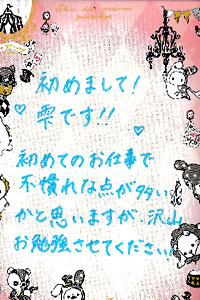 初めまして!
雫です!!
初めてのお仕事で
不慣れな点が多い
かと思いますが、沢山
お勉強させてください!